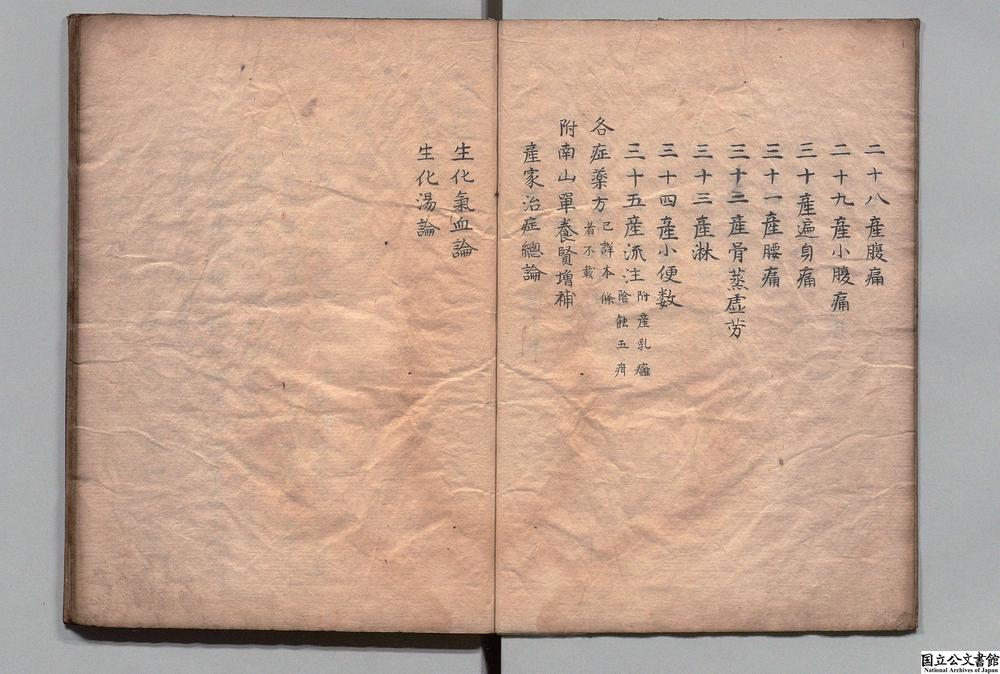 二十八產腹痛
二十九產小腹痛
三十產遍身痛
三十一產腰痛
三十三產骨蒸虛劳
三十三產淋
三十四產小便数
三十五產流注附產乳癰陰蝕五疳
各症薬方已詳本條者不載
附南山單養賢増補
產家治症總論
生化氣血論
生化湯論
国立公文書館
National Archives of Japan